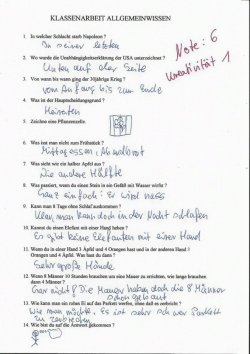 KLASSENARBEIT ALLGEMEINWISSEN
Note: 6
Kreativität 1
1. In welcher Schlacht starb Napoleon ?
In seiner letzten
2. Wo wurde die Unabhängigkeitserklärung der USA unterzeichnet ?
Unten auf der Seite
3. Von wann bis wann ging der 30jährige Krieg ?
vom Anfang bis zum Ende
4. Was ist der Hauptscheidungsgrund ?
Heiraten
5. Zeichne eine Pflanzenzelle.
6. Was isst man nicht zum Frühstück ?
Mittagessen, Abendbrot
7. Was sieht wie ein halber Apfel aus ?
Die andere Hälfte
8. Was passiert, wenn du einen Stein in ein Gefäß mit Wasser wirfst ?
Ganz einfach: Er wird nass
9. Kann man 8 Tage ohne Schlaf auskommen ?
Klar, man kann doch in der Nacht schlafen
10. Kannst du einen Elefant mit einer Hand heben ?
Es gibt keine Elefanten mit einer Hand
11. Wenn du in der Hand 3 Äpfel und 4 Orangen hast und in der anderen Hand 3
Orangen und 4 Äpfel. Was hast du dann ?
Sehr große Hände.
12. Wenn 8 Männer 10 Stunden brauchen um eine Mauer zu errichten, wie lange brauchen
dann 4 Männer ?
Gar nicht! Die Mauer haben doch die 8 Männer
schon gebaut
13. Wie kann man ein rohes Ei auf das Parkett werfen, ohne daß es zerbricht ?
Wie man möchte. Es ist sehr schwer Parkett
zu zerbrechen
14. Wie bist du auf die Antwort gekommen ?